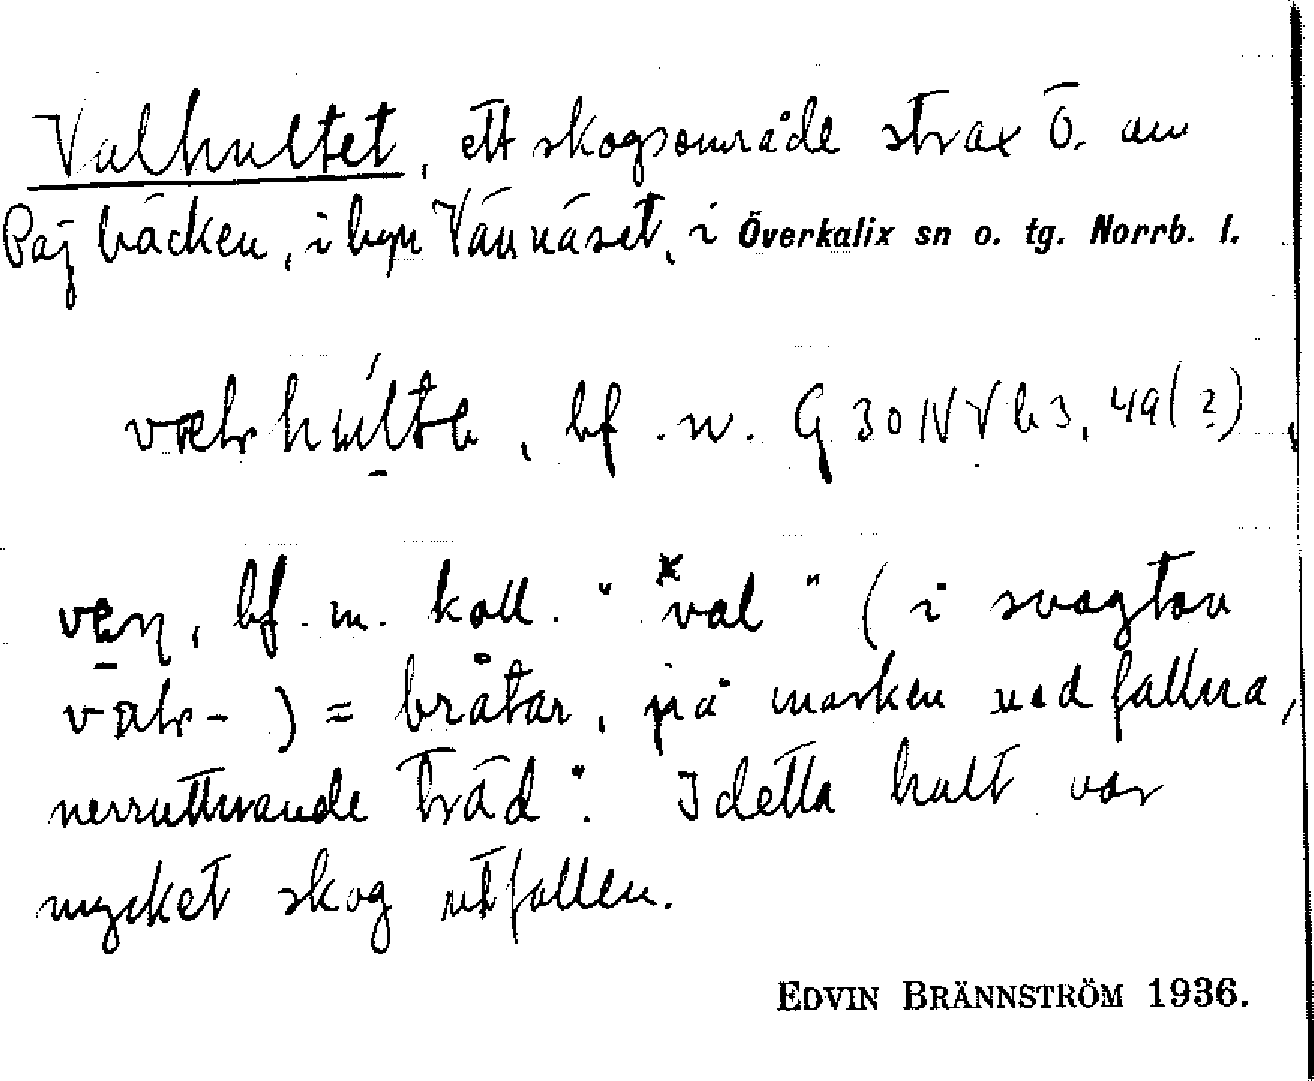 Valhultet, ett skogsområde strax ö. om
Pajbäcken, i byn Vännäset, i Överkalix sn o. tg. Norrb. l.
bf. n. G 30 NV b3, 49(?)
bf. m. koll. "*val" (i svagton
) = bråtar, på marken nedfallna,
nerruttnande träd". I detta hult var
mycket skog utfallen.
EDVIN BRÄNNSTRÖM 1936.